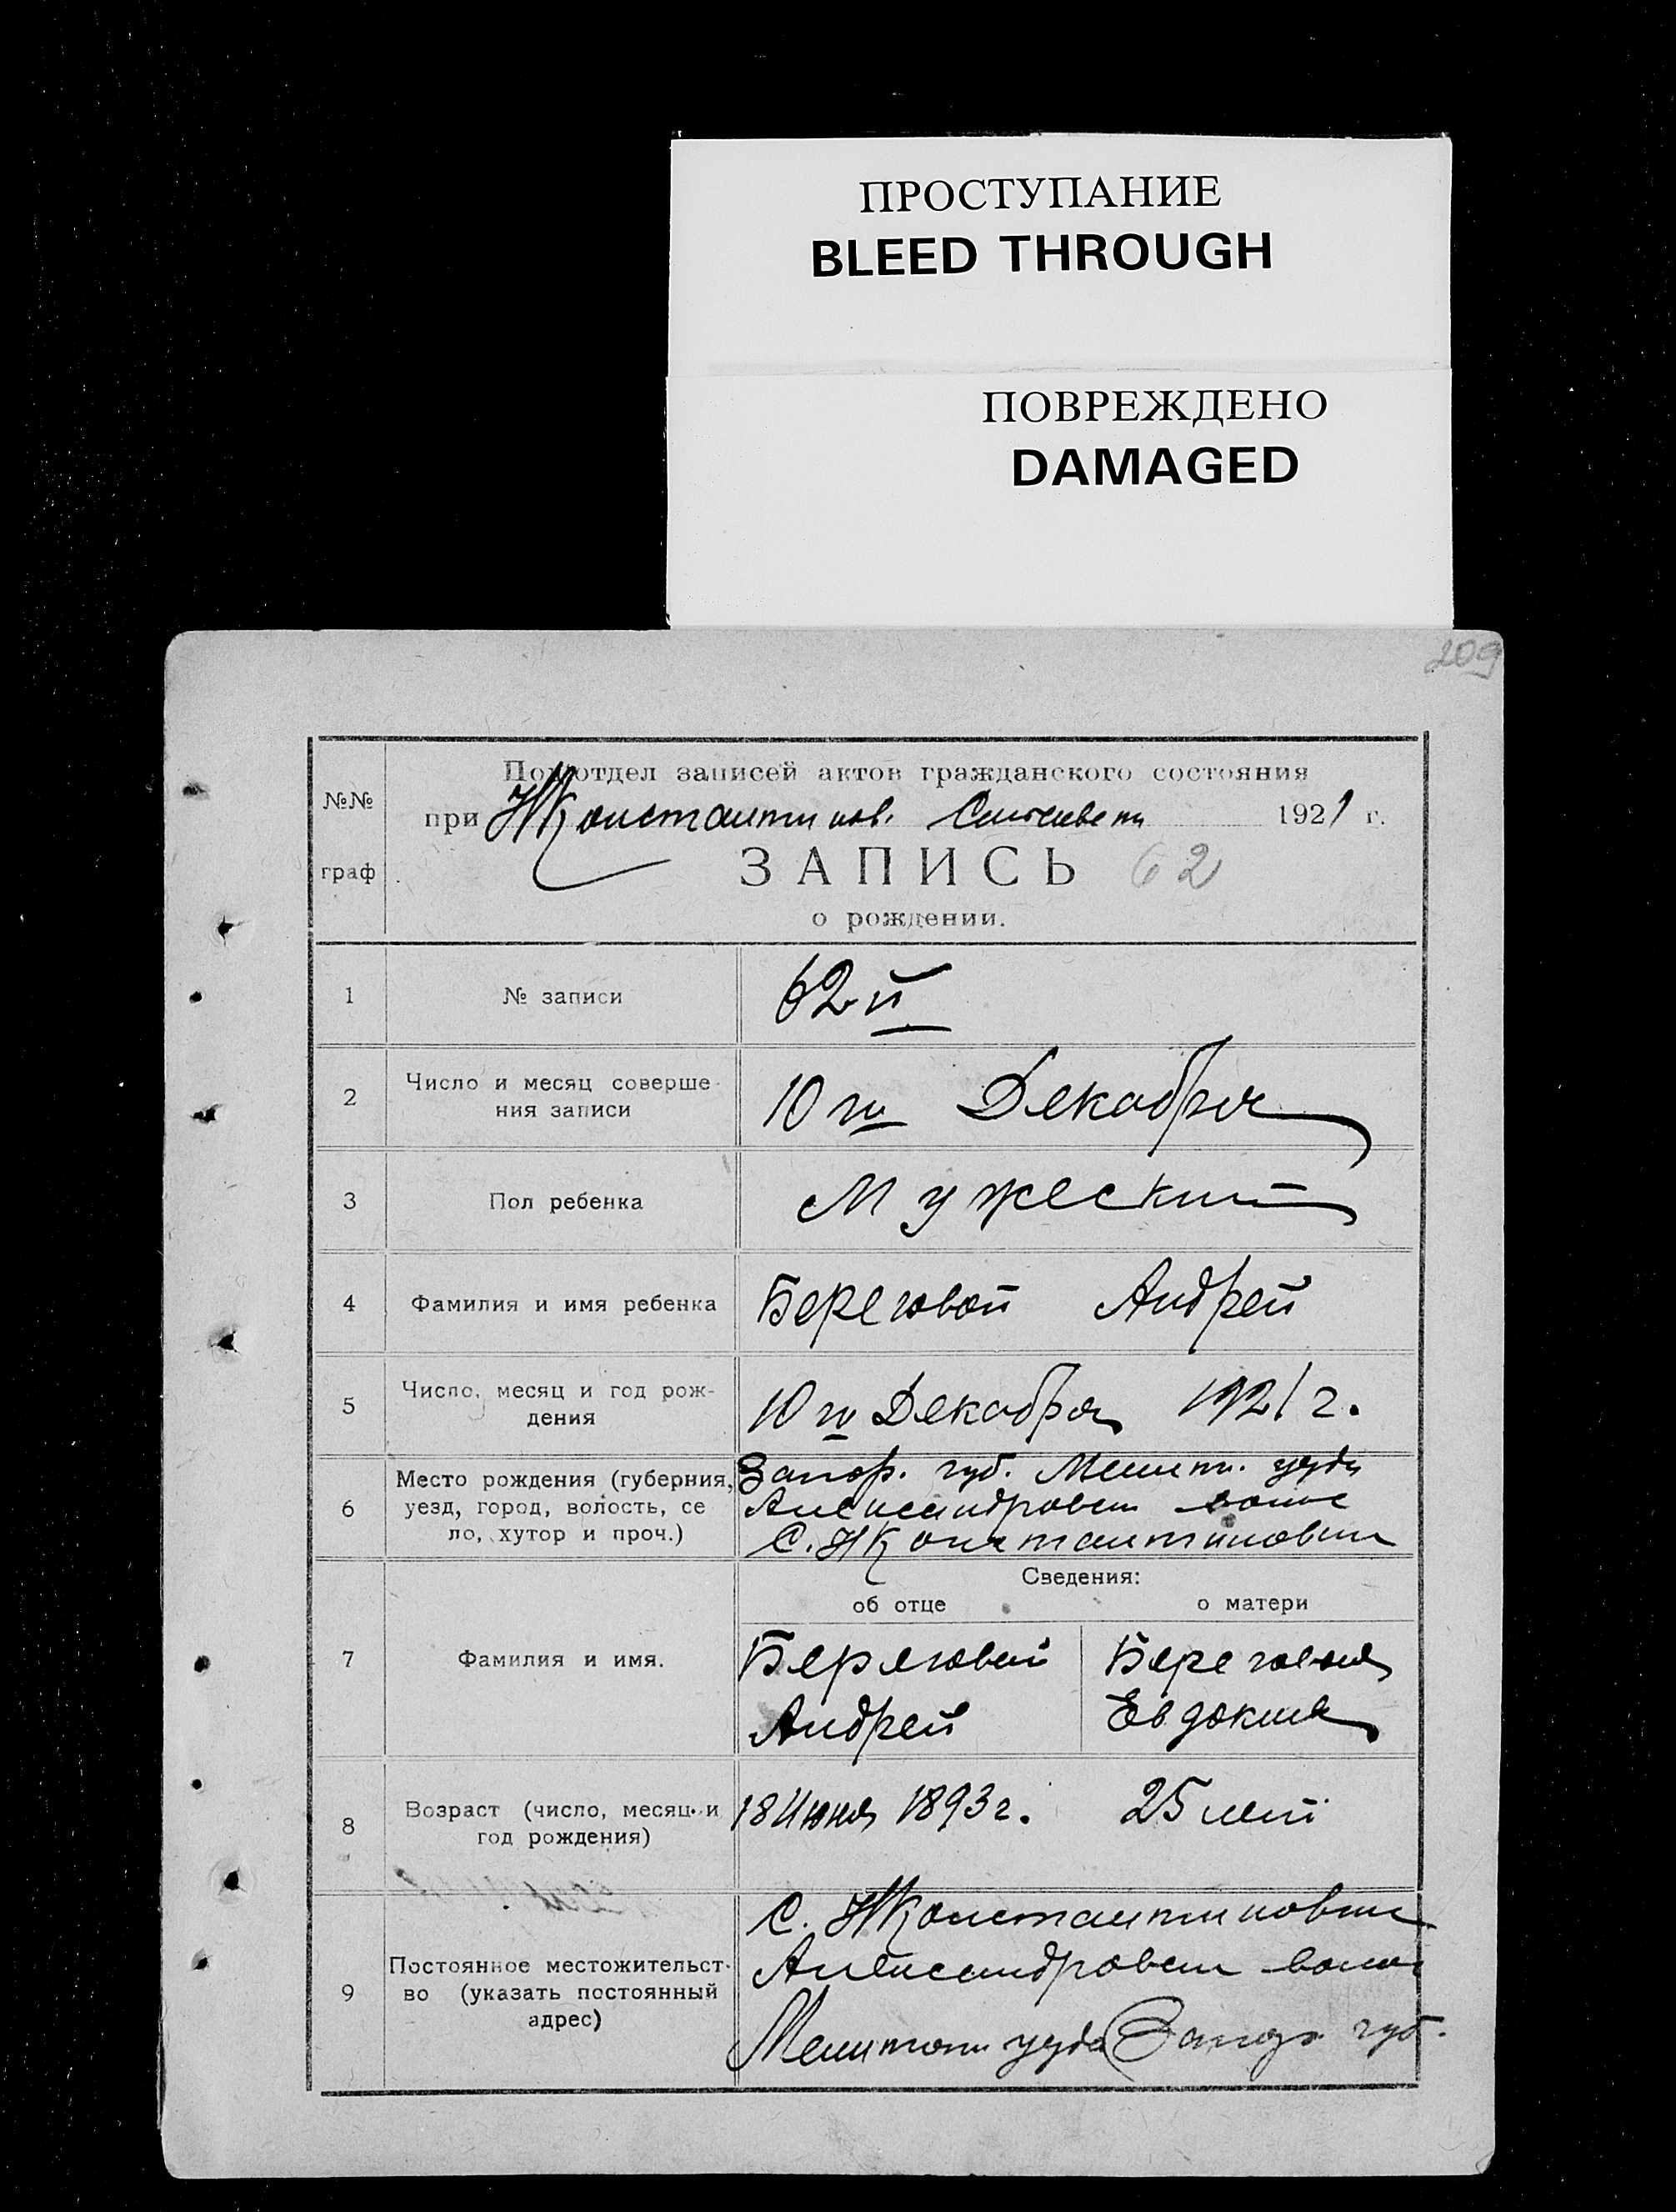 ПРОСТУПАНИЕ
BLEED THROUGH
ПОВРЕЖДЕНО
DAMAGED
209
Подотдел записей актов гражданского состояния
№№
при Н Константинов. 1921 г.
граф
ЗАПИСЬ 62
о рождении.
1 № записи 62 й
2 Число и месяц соверше-
ния записи
10 го Декабря
3 Пол ребенка Мужеский
4 Фамилия и имя ребенка Береговой Андрей
5 Число, месяц и год рож-
дения
10 го Декабря 1921 г.
6 Место рождения (губерния,
уезд, город, волость, се
ло, хутор и проч.)
Запор. губ. Мелит. уезда
Александровск волос
С. Н Константиновки
Сведения:
об отце о матери
7 Фамилия и имя.
Береговой Береговая
Андрей Евдокия
8 Возраст (число, месяц и
год рождения)
18 Июня 1893 г. 25 лет
9 Постоянное местожительст-
во (указать постоянный
адрес)
С. Н Константиновки
Александровск волос
Мелитоп уезда Запор губ.